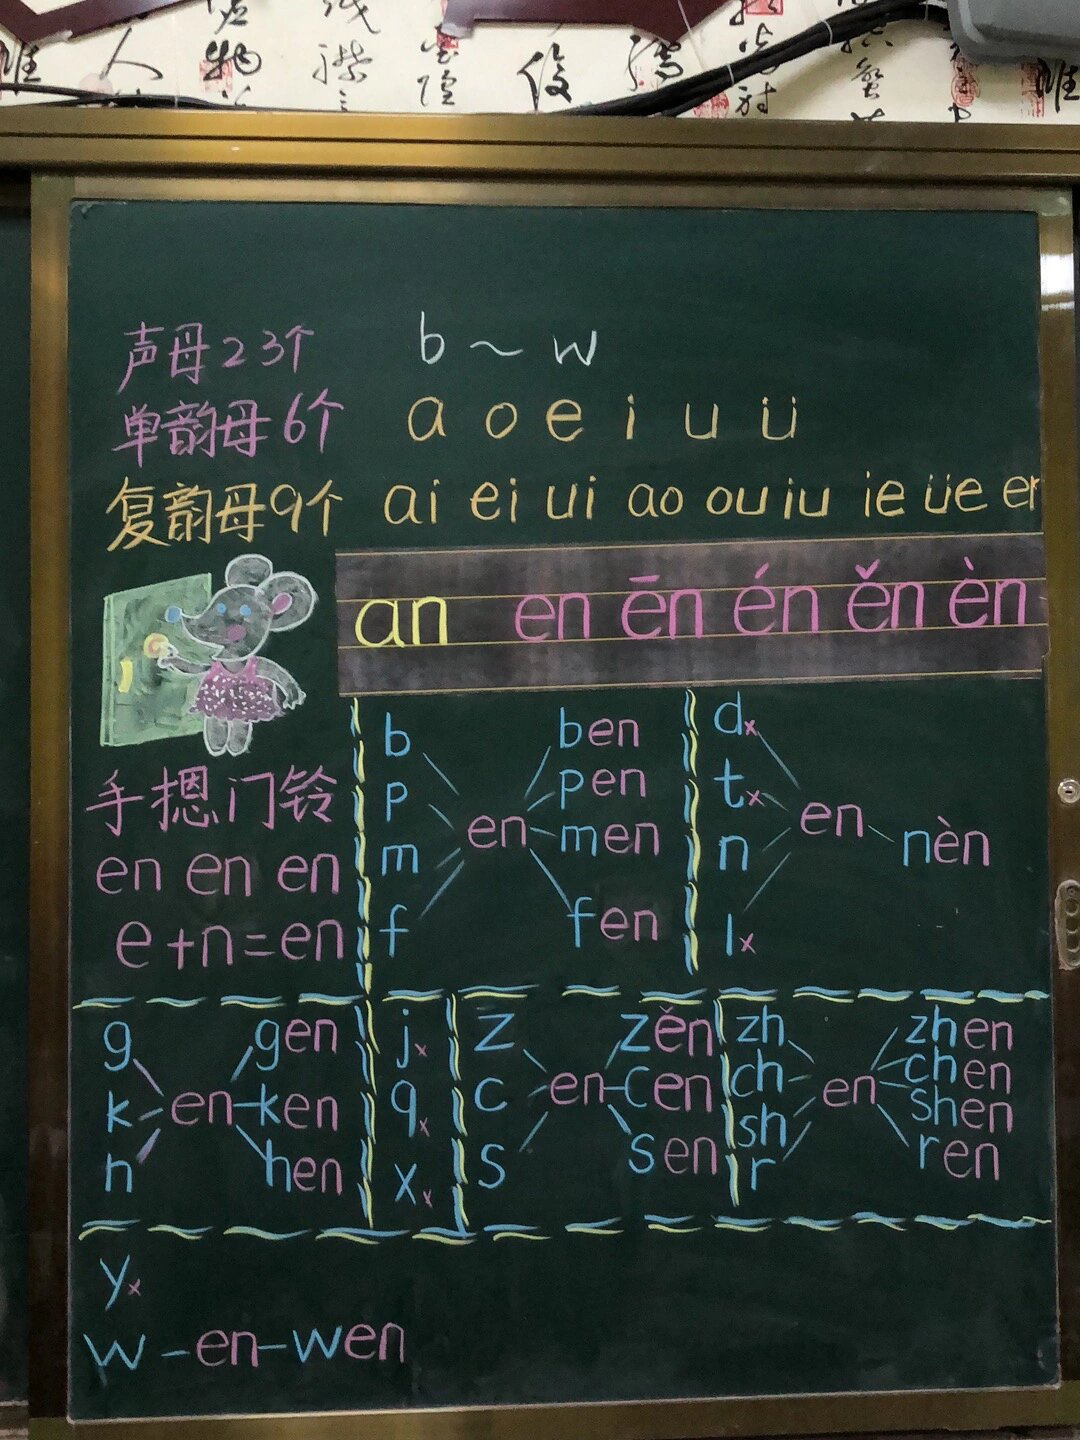 声母23个 b~w
单韵母6个 a o e i u ü
复韵母9个 ai ei ui ao ou iu ie üe er
an en ēn én ěn èn
手摁门铃
en en en
e+n=en
b
p
m
f
en
ben
pen
men
fen
d×
t×
n
l×
en
nèn
g
k
h
en
gen
ken
hen
j×
q×
x×
z
c
s
en
zěn
cen
sen
zh
ch
sh
r
en
zhen
chen
shen
ren
y×
w-en-wen